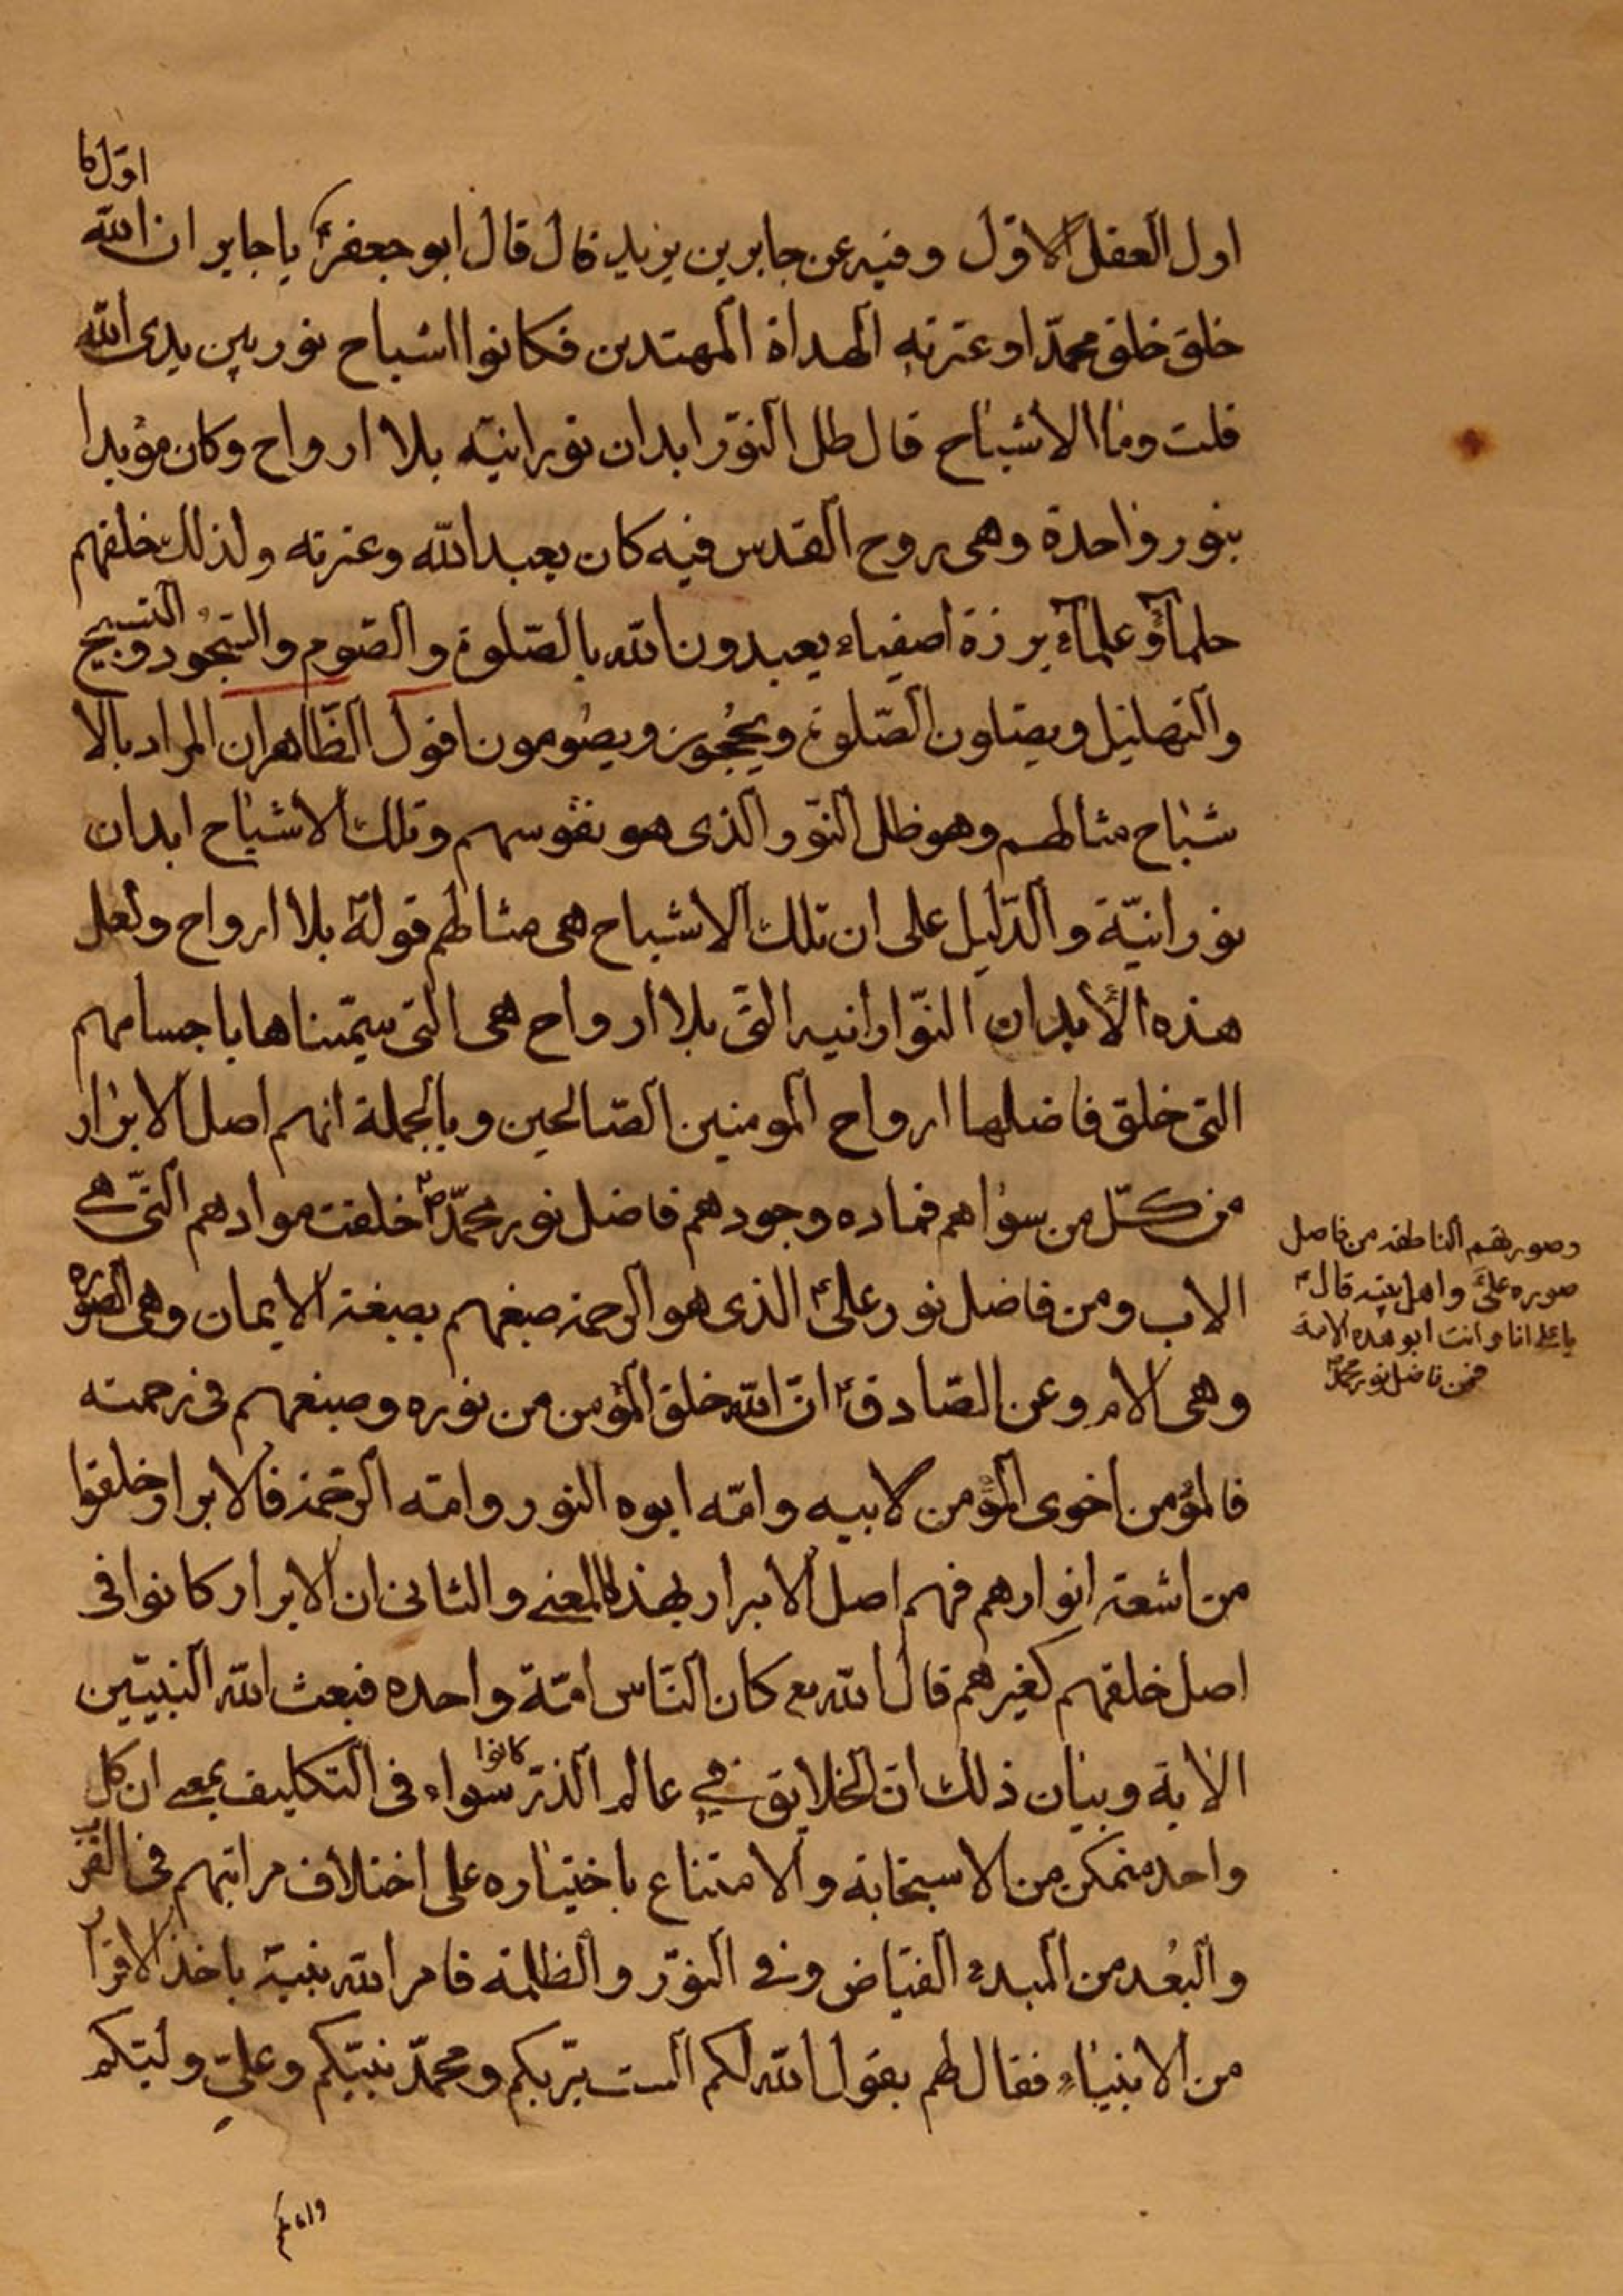 اول ما
اول العقل الاول وفيه عن جابر بن يزيد قال قال ابو جعفرع يا جابر ان الله
خلق خلق محمدا وعترته الهداة المهتدين فكانوا اشباح نور بين يدى الله
قلت وما الاشباح قال ظل النور ابدان نورانيه بلا ارواح وكان مؤيدا
بنور واحدة وهى روح القدس فيه كان يعبد الله وعترته ولذلك خلقهم
حلمآء وعلمآء بررة اصفياء يعبدون الله بالصلوة والصوم والسجود والتسبيح
والتهليل ويصلون الصلوة ويحجون ويصومون اقول الظاهر ان المراد بالا
شباح مثالهم وهو ظل النور الذى هو نفوسهم وتلك الاشباح ابدان
نورانيّة والدّليل على ان تلك الاشباح هى مثالهم قوله بلا ارواح ولعل
هذه الأبدان النّورانيه التى بلا ارواح هى التى سمّيناها باجسامهم
التى خلق فاضلها ارواح المومنين الصّالحين وبالجملة انهم اصل الابرار
من كلّ من سواهم فماده وجودهم فاضل نور محمّدص خلقت موادهم التى هے
الاب ومن فاضل نور علىع الذى هو الرحمة صبغهم بصبغة الايمان وهى الصوره
وهى الام وعن الصّادقع انّ الله خلق المؤمن من نوره وصبغهم فى رحمته
فالمؤمن اخوى المؤمن لابيه وامّه ابوه النور وامّه الرّحمة فالابرار خلقوا
من اشعة انوارهم فهم اصل الابرار بهذا المعنے والثانى ان الابرار كانوا فى
اصل خلقهم كغيرهم قال الله تع كان النّاس امّة واحده فبعث الله النبيّين
الاية وبيان ذلك انّ الخلايق في عالم الذرّ كانوا سواء فى التكليف بمعنے ان كل
واحد متمكن من الاستجابة والامتناع باختياره على اختلاف مراتبهم فى القرب
والبُعد من المبدء الفيّاض وفى النور والظلمة فامر الله نبيّه باخذ الاقرار
من الانبياء فقال لهم يقول الله لكم الست بربّكم ومحمّد نبيّكم وعلىّ وليّكم
وصورتهم الناطقه من فاضل
صوره علىع واهل بيته قال
يا علے انا وانت ابو هذه الامة
فمن فاضل نور محمدص